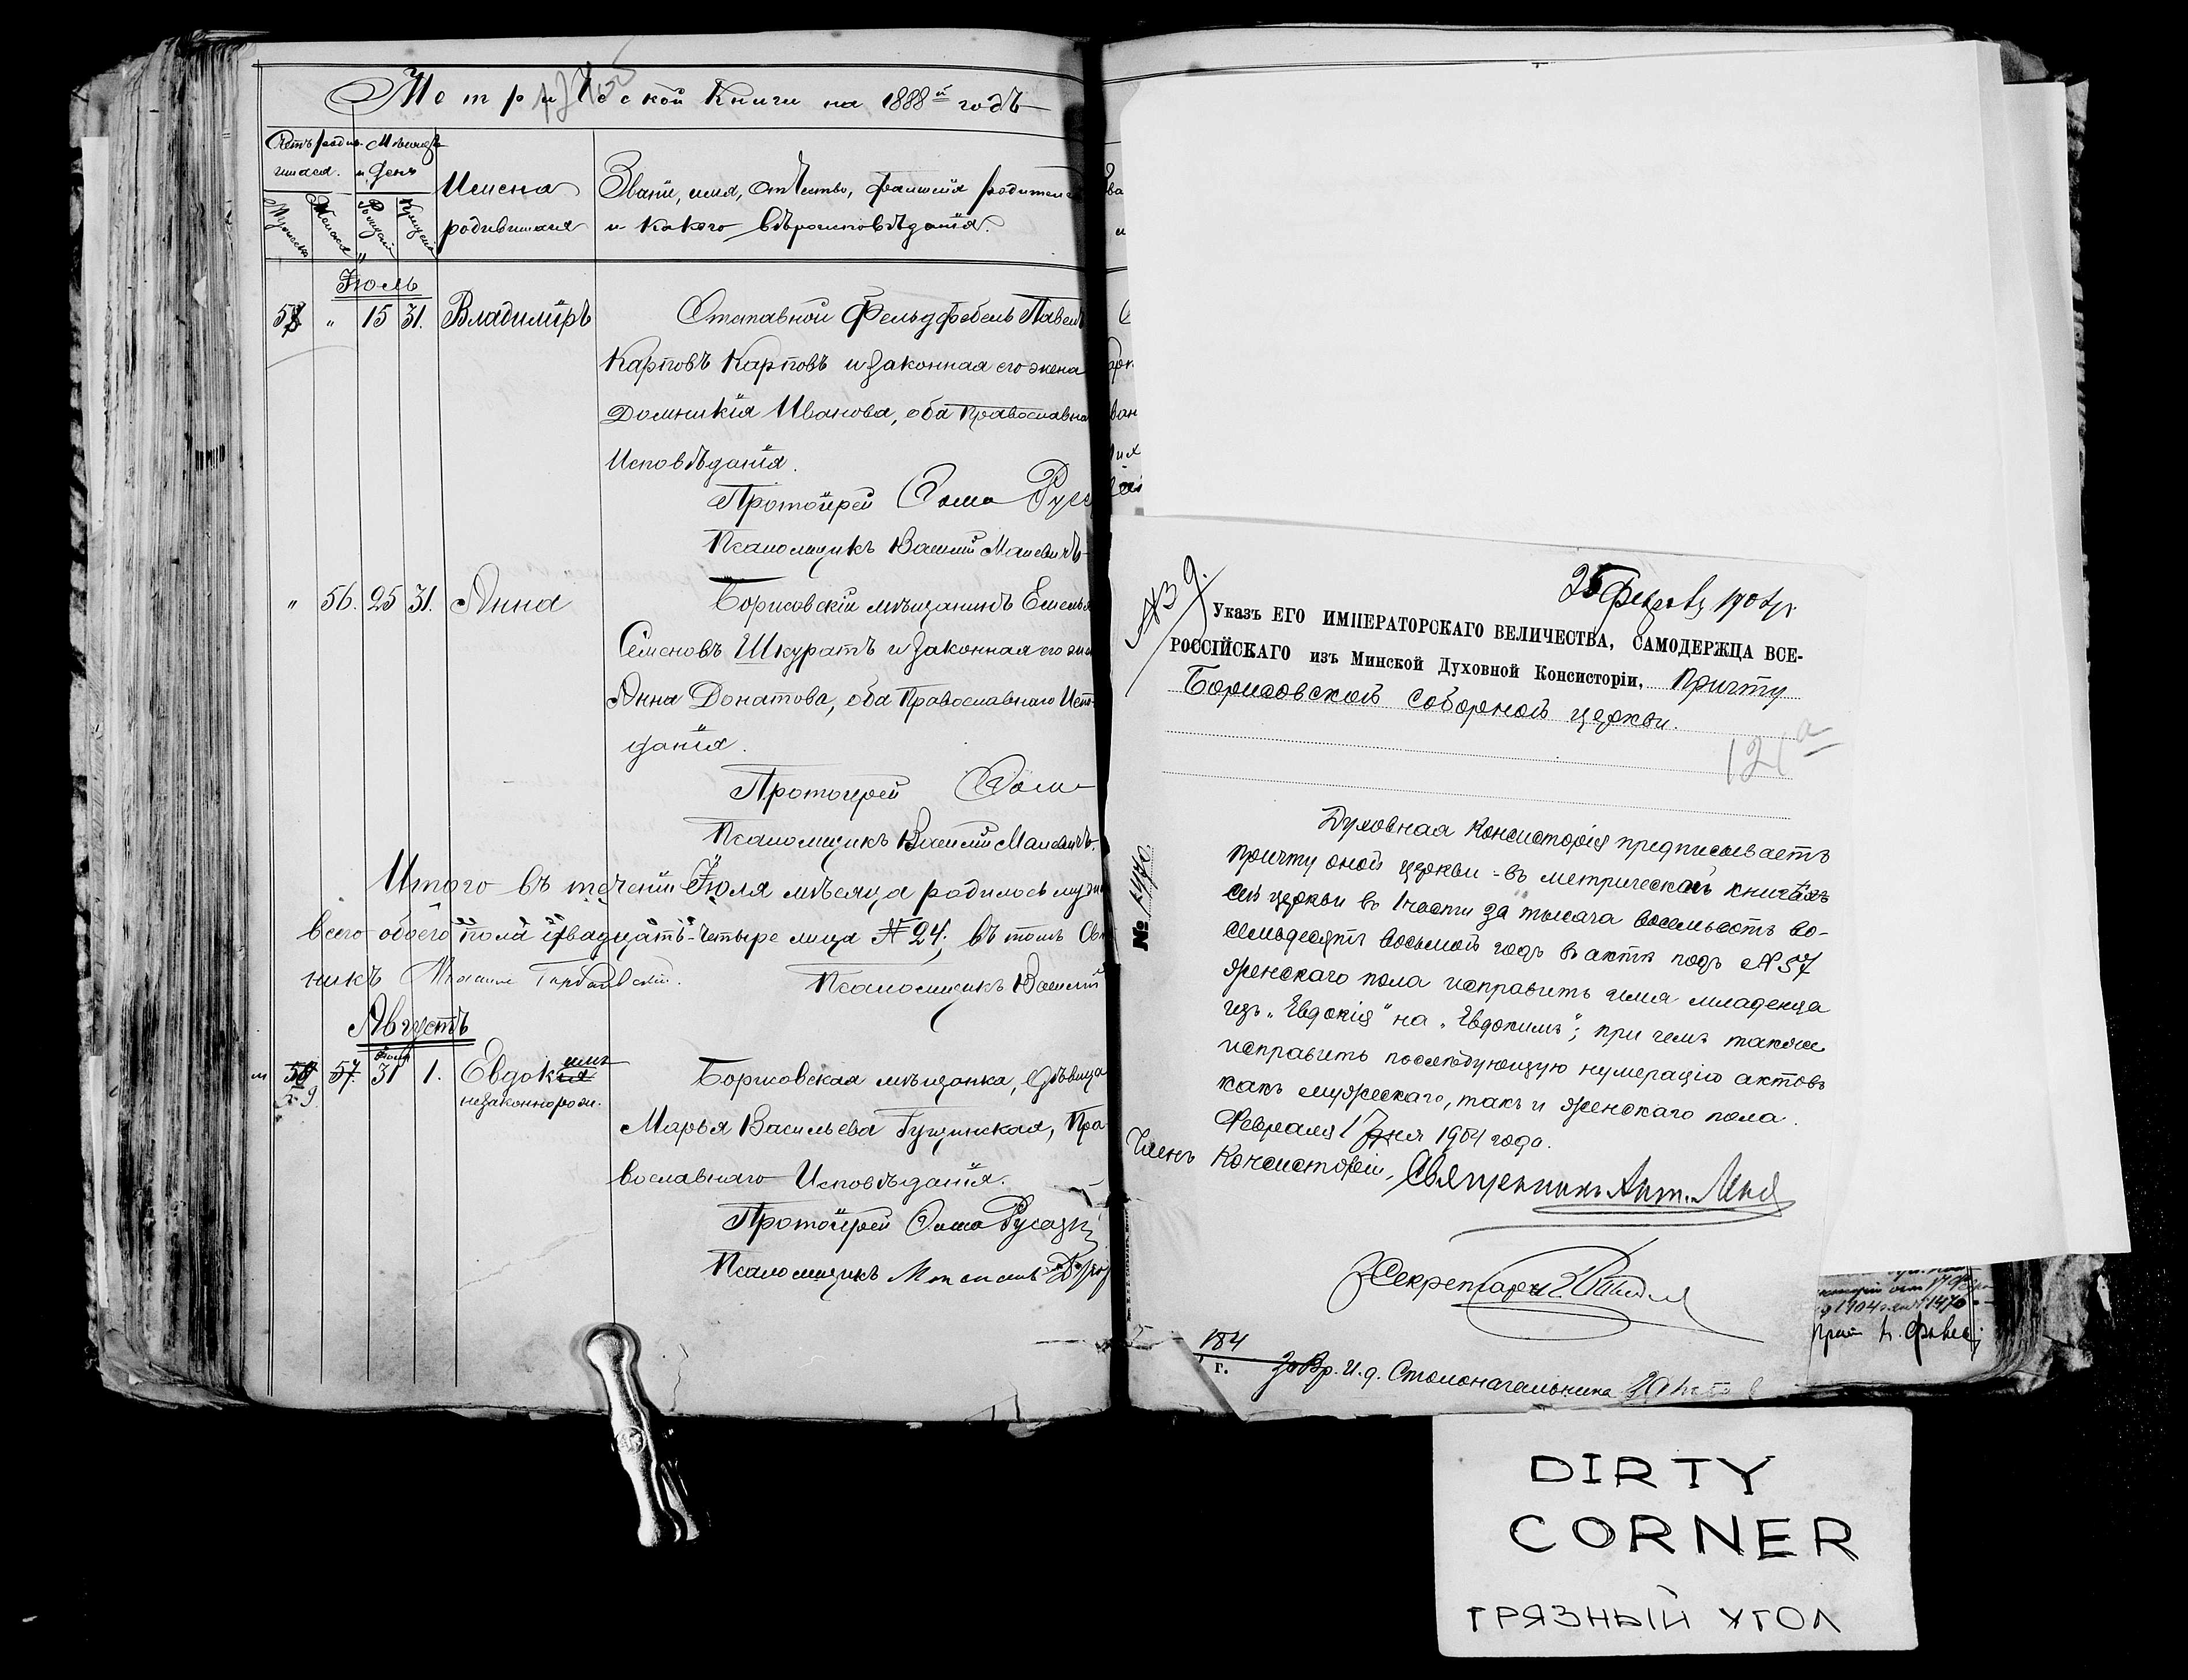 Метрической Книги на 1888й годъ
Счетъ родив-
шихся.
Мѣсяцъ
и День
Имена
родившихся
Званіе, имя, отчество, фамилія родителей
и какого вѣроисповѣданія.
Мужеска
Женска
Рожденій
Крещенія
Іюль
58 " 15 31. Владиміръ
Отставной Фельдфебель Павелъ
Карповъ Карповъ и законная его жена
Домникія Иванова, оба Православна
Исповѣданія.
Протоіерей Фома Рус
Псаломщикъ Василій Малевичъ
" 56. 25 31. Анна
Борисовскій мѣщанинъ Емелья
Семеновъ Шкуратъ и законная его же
Анна Донатова, оба Православнаго Испо-
данія.
Протоіерей Фома
Псаломщикъ Василій Малевичъ.
Итого въ теченіи Іюля мѣсяца родилось муж
всего обоего пола двадцать-четыре лица № 24; въ томъ Свя
никъ
Псаломщикъ Василій
Августъ
57. 31 1. Евдокія имъ
59
незаконнорож.
Борисовская мѣщанка, дѣвица
Марья Васильева Гущинская, Пра
вославнаго Исповѣданія.
Протоіерей Фома Русецкі
Псаломщикъ
№ 39.
25 Февраля 1904 г.
Указъ ЕГО ИМПЕРАТОРСКАГО ВЕЛИЧЕСТВА, САМОДЕРЖЦА ВСЕ-
РОССІЙСКАГО изъ Минской Духовной Консисторіи, Причту
Борисовской соборной церкви.
121а
Духовная Консисторія предписываетъ
причту оной церкви - въ метрической книгѣ
сей церкви въ 1 части за тысяча восемьсотъ во-
семьдесятъ восьмой годъ въ актѣ подъ № 57
женскаго пола исправить имя младенца
изъ „Евдокія" на „Евдокимъ"; при чемъ также
исправить послѣдующую нумерацію актовъ
какъ мужескаго, такъ и женскаго пола.
Февраля 17 дня 1904 года.
№ 1470
Членъ Консисторіи, Священникъ Ант.
Секретарь
184
г.
За Вр. И. д. Столоначальника
1904 г. № 1470
DIRTY
CORNER
ГРЯЗНЫЙ УГОЛ